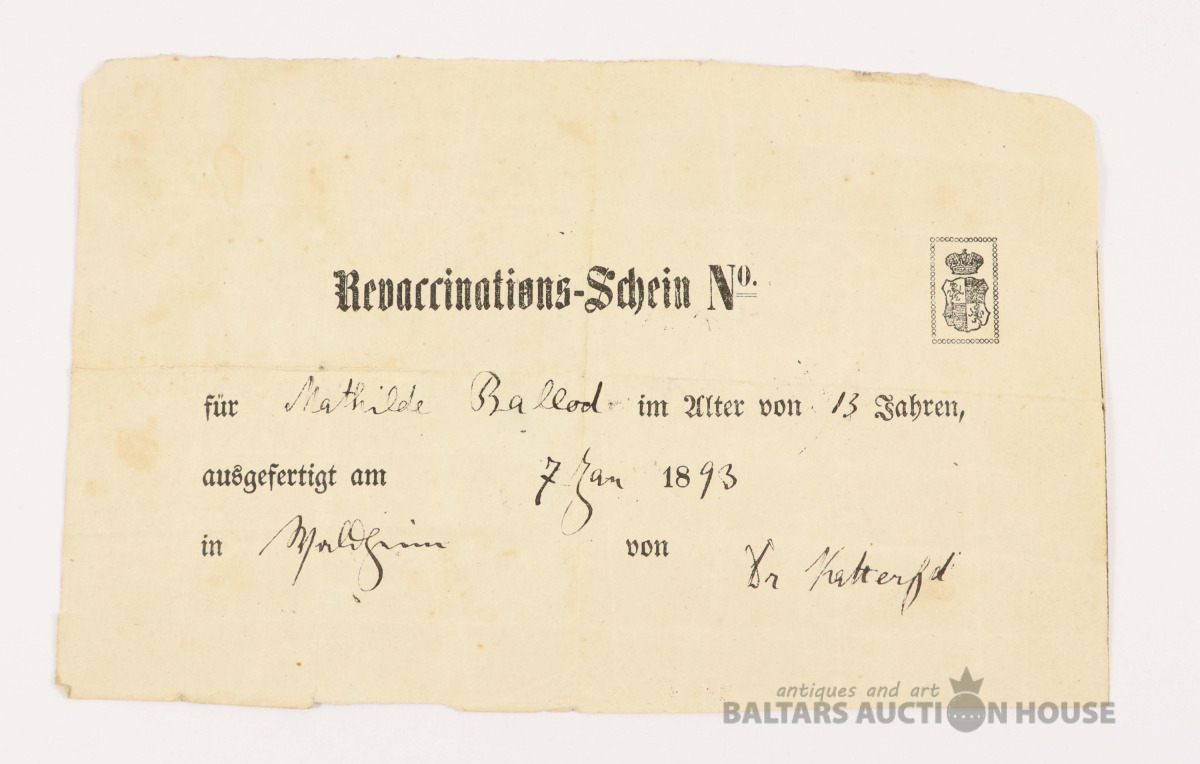 Revaccinations-Schein No.
für Mathilde Ballod im Alter von 13 Jahren,
ausgefertigt am 7 Jan 1893
in Waldheim von Dr
antiques and art
BALTARS AUCTION HOUSE